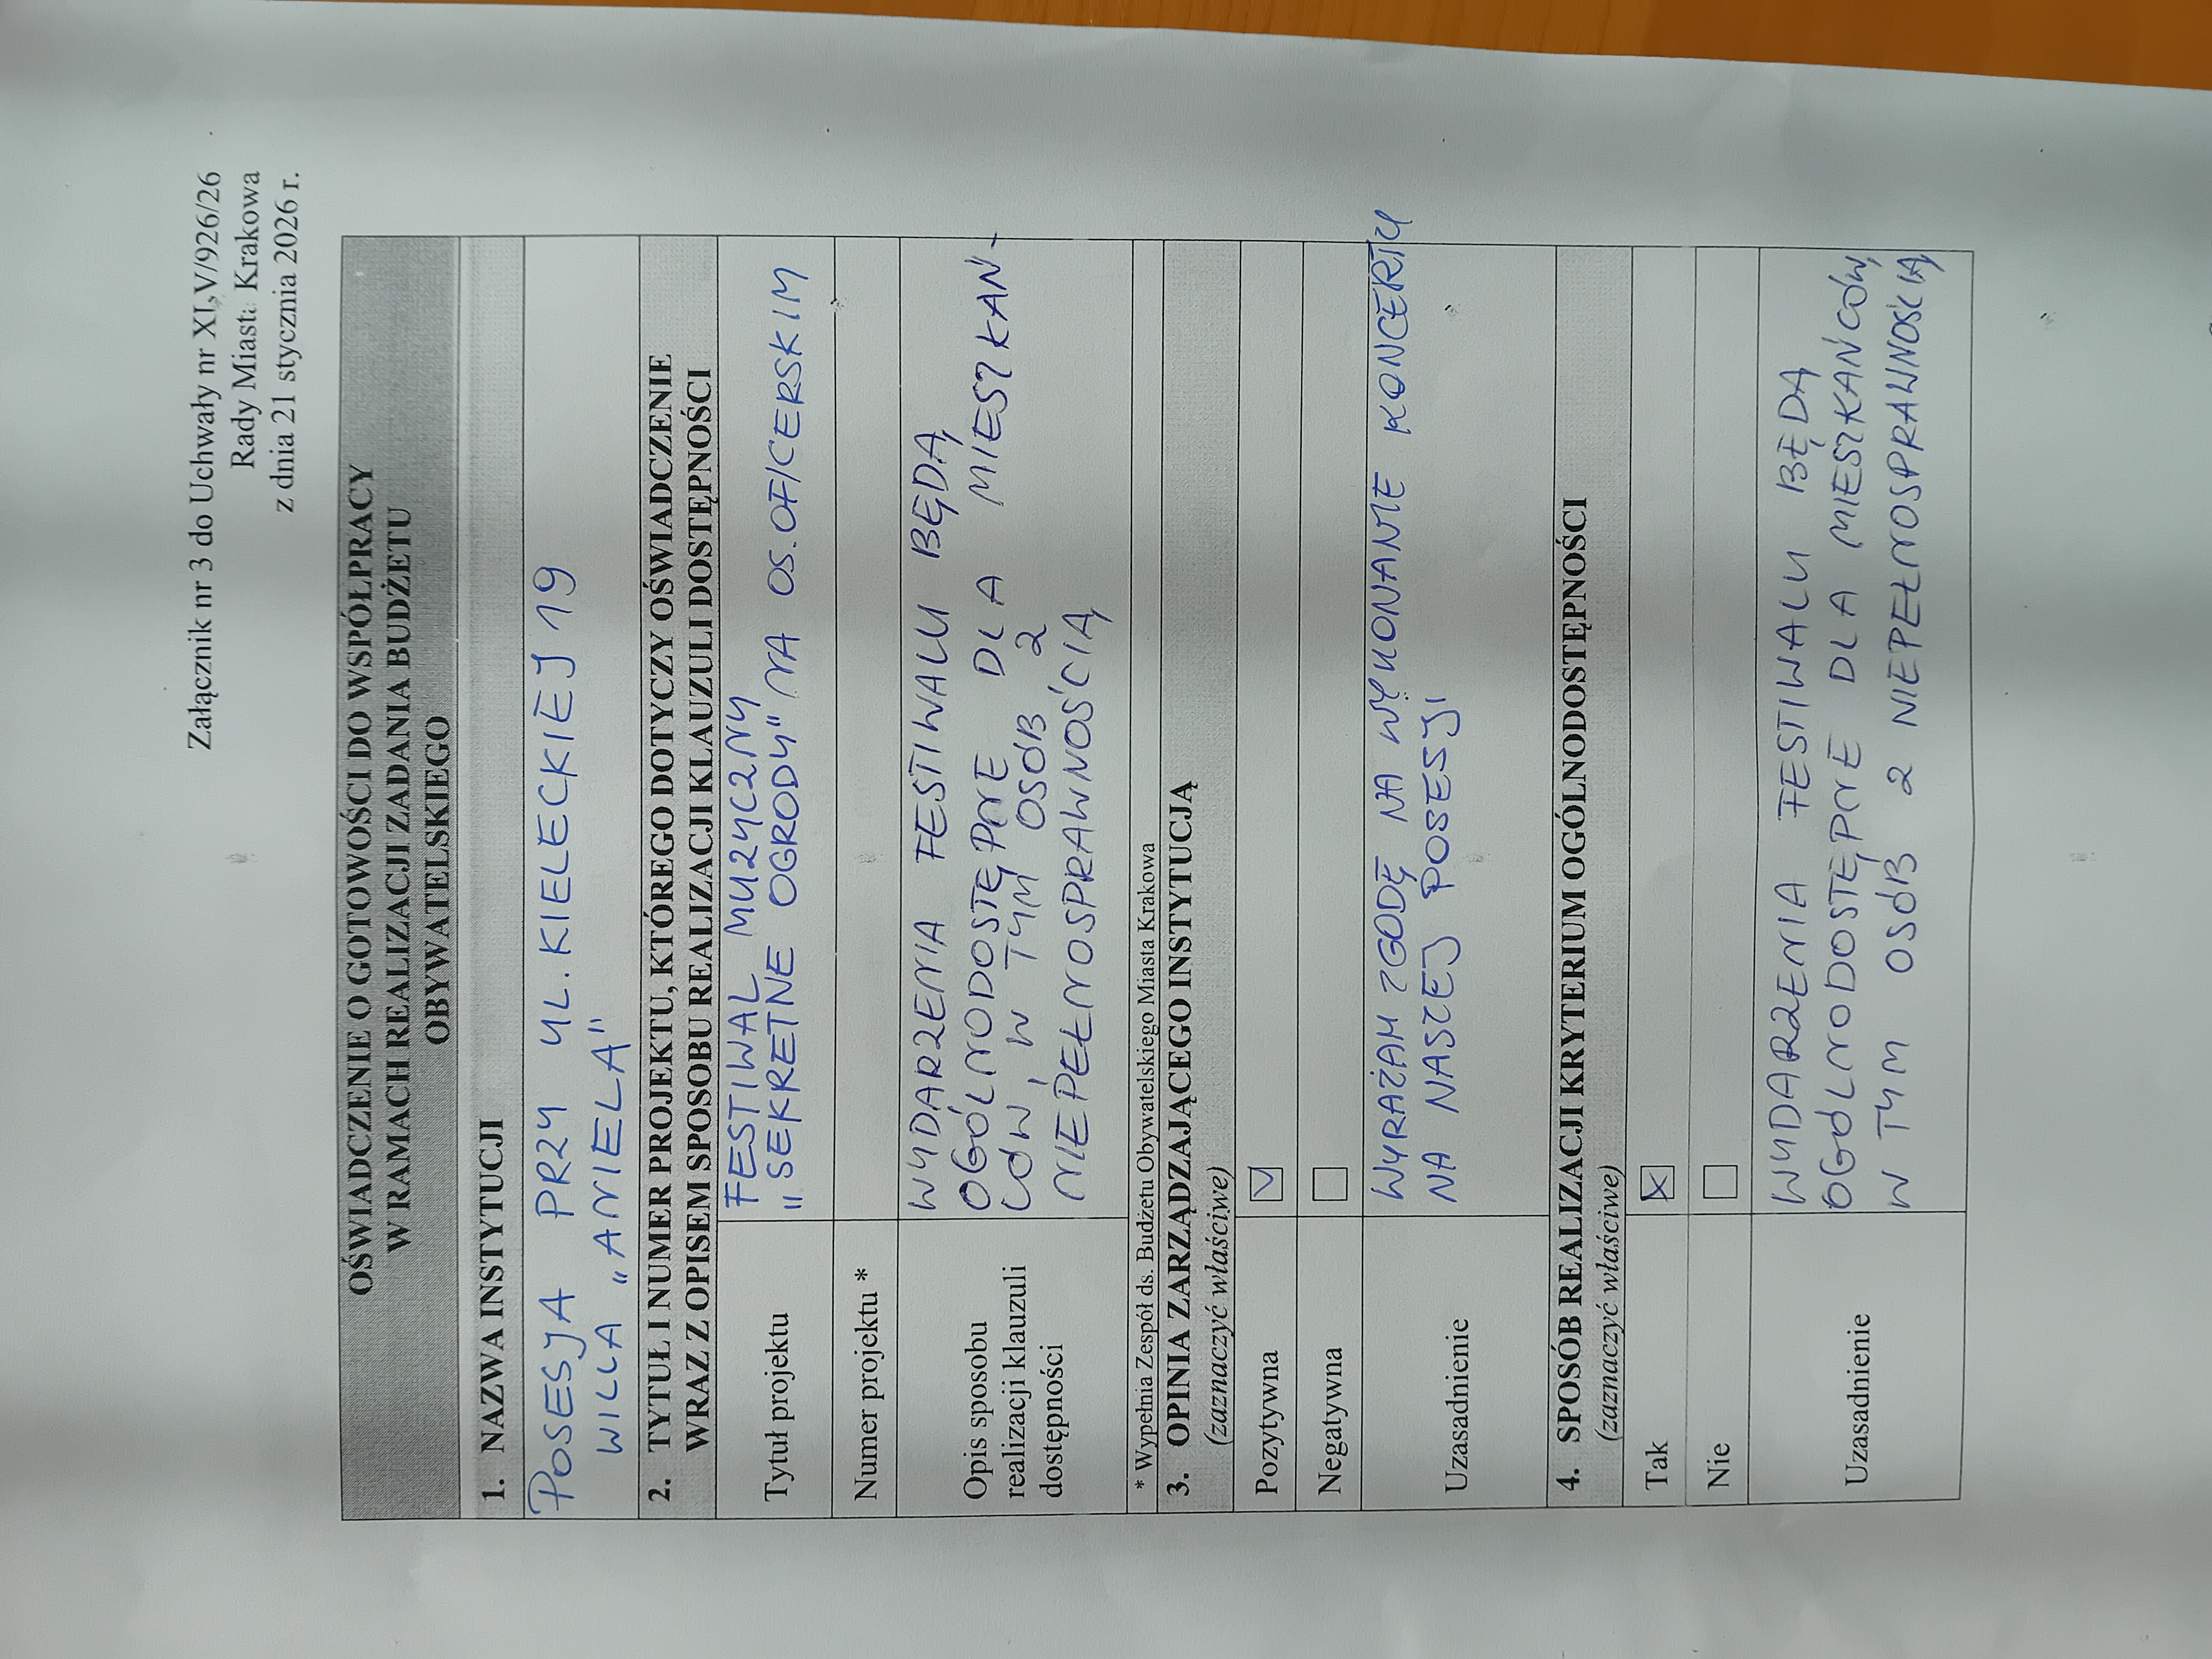 Załącznik nr 3 do Uchwały nr XLV/926/26
Rady Miasta Krakowa
z dnia 21 stycznia 2026 r.
OŚWIADCZENIE O GOTOWOŚCI DO WSPÓŁPRACY
W RAMACH REALIZACJI ZADANIA BUDŻETU
OBYWATELSKIEGO
1. NAZWA INSTYTUCJI
POSESJA PRZY UL. KIELECKIEJ 19
WILLA „ANIELA"
2. TYTUŁ I NUMER PROJEKTU, KTÓREGO DOTYCZY OŚWIADCZENIE
WRAZ Z OPISEM SPOSOBU REALIZACJI KLAUZULI DOSTĘPNOŚCI
Tytuł projektu
FESTIWAL MUZYCZNY
"SEKRETNE OGRODY" NA OS. OFICERSKIM
Numer projektu *
Opis sposobu
realizacji klauzuli
dostępności
WYDARZENIA FESTIWALU BĘDĄ
OGÓLNODOSTĘPNE DLA MIESZKAŃ-
CÓW, W TYM OSÓB Z
NIEPEŁNOSPRAWNOŚCIĄ
* Wypełnia Zespół ds. Budżetu Obywatelskiego Miasta Krakowa
3. OPINIA ZARZĄDZAJĄCEGO INSTYTUCJĄ
(zaznaczyć właściwe)
Pozytywna
Negatywna
Uzasadnienie
WYRAŻAM ZGODĘ NA WYKONANIE KONCERTU
NA NASZEJ POSESJI
4. SPOSÓB REALIZACJI KRYTERIUM OGÓLNODOSTĘPNOŚCI
(zaznaczyć właściwe)
Tak
Nie
Uzasadnienie
WYDARZENIA FESTIWALU BĘDĄ
OGÓLNODOSTĘPNE DLA MIESZKAŃCÓW,
W TYM OSÓB Z NIEPEŁNOSPRAWNOŚCIĄ